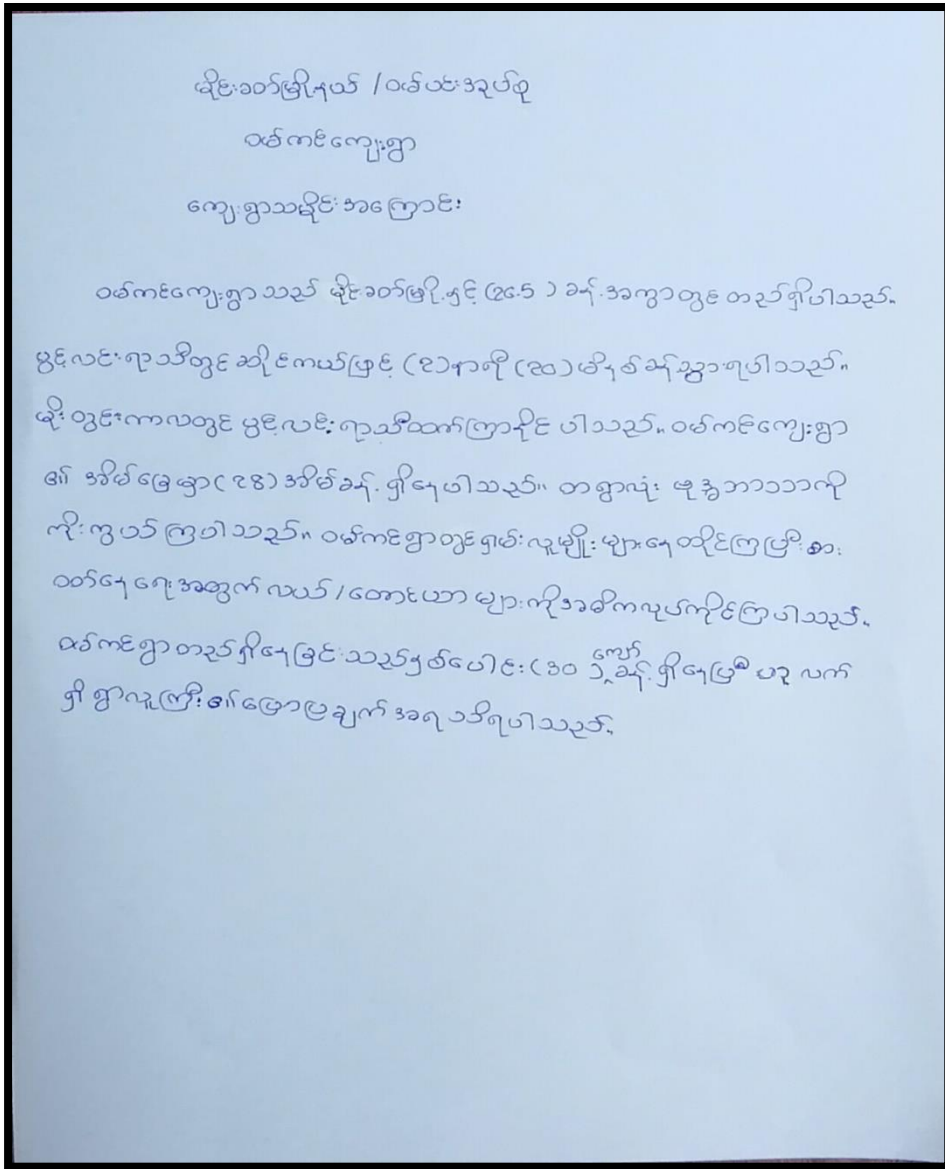 မိုင်းခတ်မြို့နယ် / ဝမ်ပင်းအုပ်စု
ဝမ်ကင်ကျေးရွာ
ကျေးရွာသမိုင်းအကြောင်း
ဝမ်ကင်ကျေးရွာသည် မိုင်းခတ်မြို့နှင့် (26.5) ခန့်အကွာတွင် တည်ရှိပါသည်။
ပွင့်လင်းရာသီတွင် ဆိုင်ကယ်ဖြင့် (၁)နာရီ (၃၀)မိနစ်ခန့်သွားရပါသည်။
မိုးတွင်းကာလတွင် ပွင့်လင်းရာသီထက်ကြာနိုင်ပါသည်။ ဝမ်ကင်ကျေးရွာ
၏ အိမ်ခြေမှာ (28) အိမ်ခန့်ရှိနေပါသည်။ တရွာလုံး ဗုဒ္ဓဘာသာကို
ကိုးကွယ်ကြပါသည်။ ဝမ်ကင်ရွာတွင် ရှမ်းလူမျိုးများနေထိုင်ကြပြီး စား
ဝတ်နေရေးအတွက် လယ်/တောင်ယာများကိုအဓိကလုပ်ကိုင်ကြပါသည်။
ဝမ်ကင်ရွာတည်ရှိနေခြင်းသည်နှစ်ပေါင်း (30 ကျော်) ခန့်ရှိနေပြီ ဟု လက်
ရှိ ရွာလူကြီး၏ပြောပြချက်အရ သိရပါသည်။